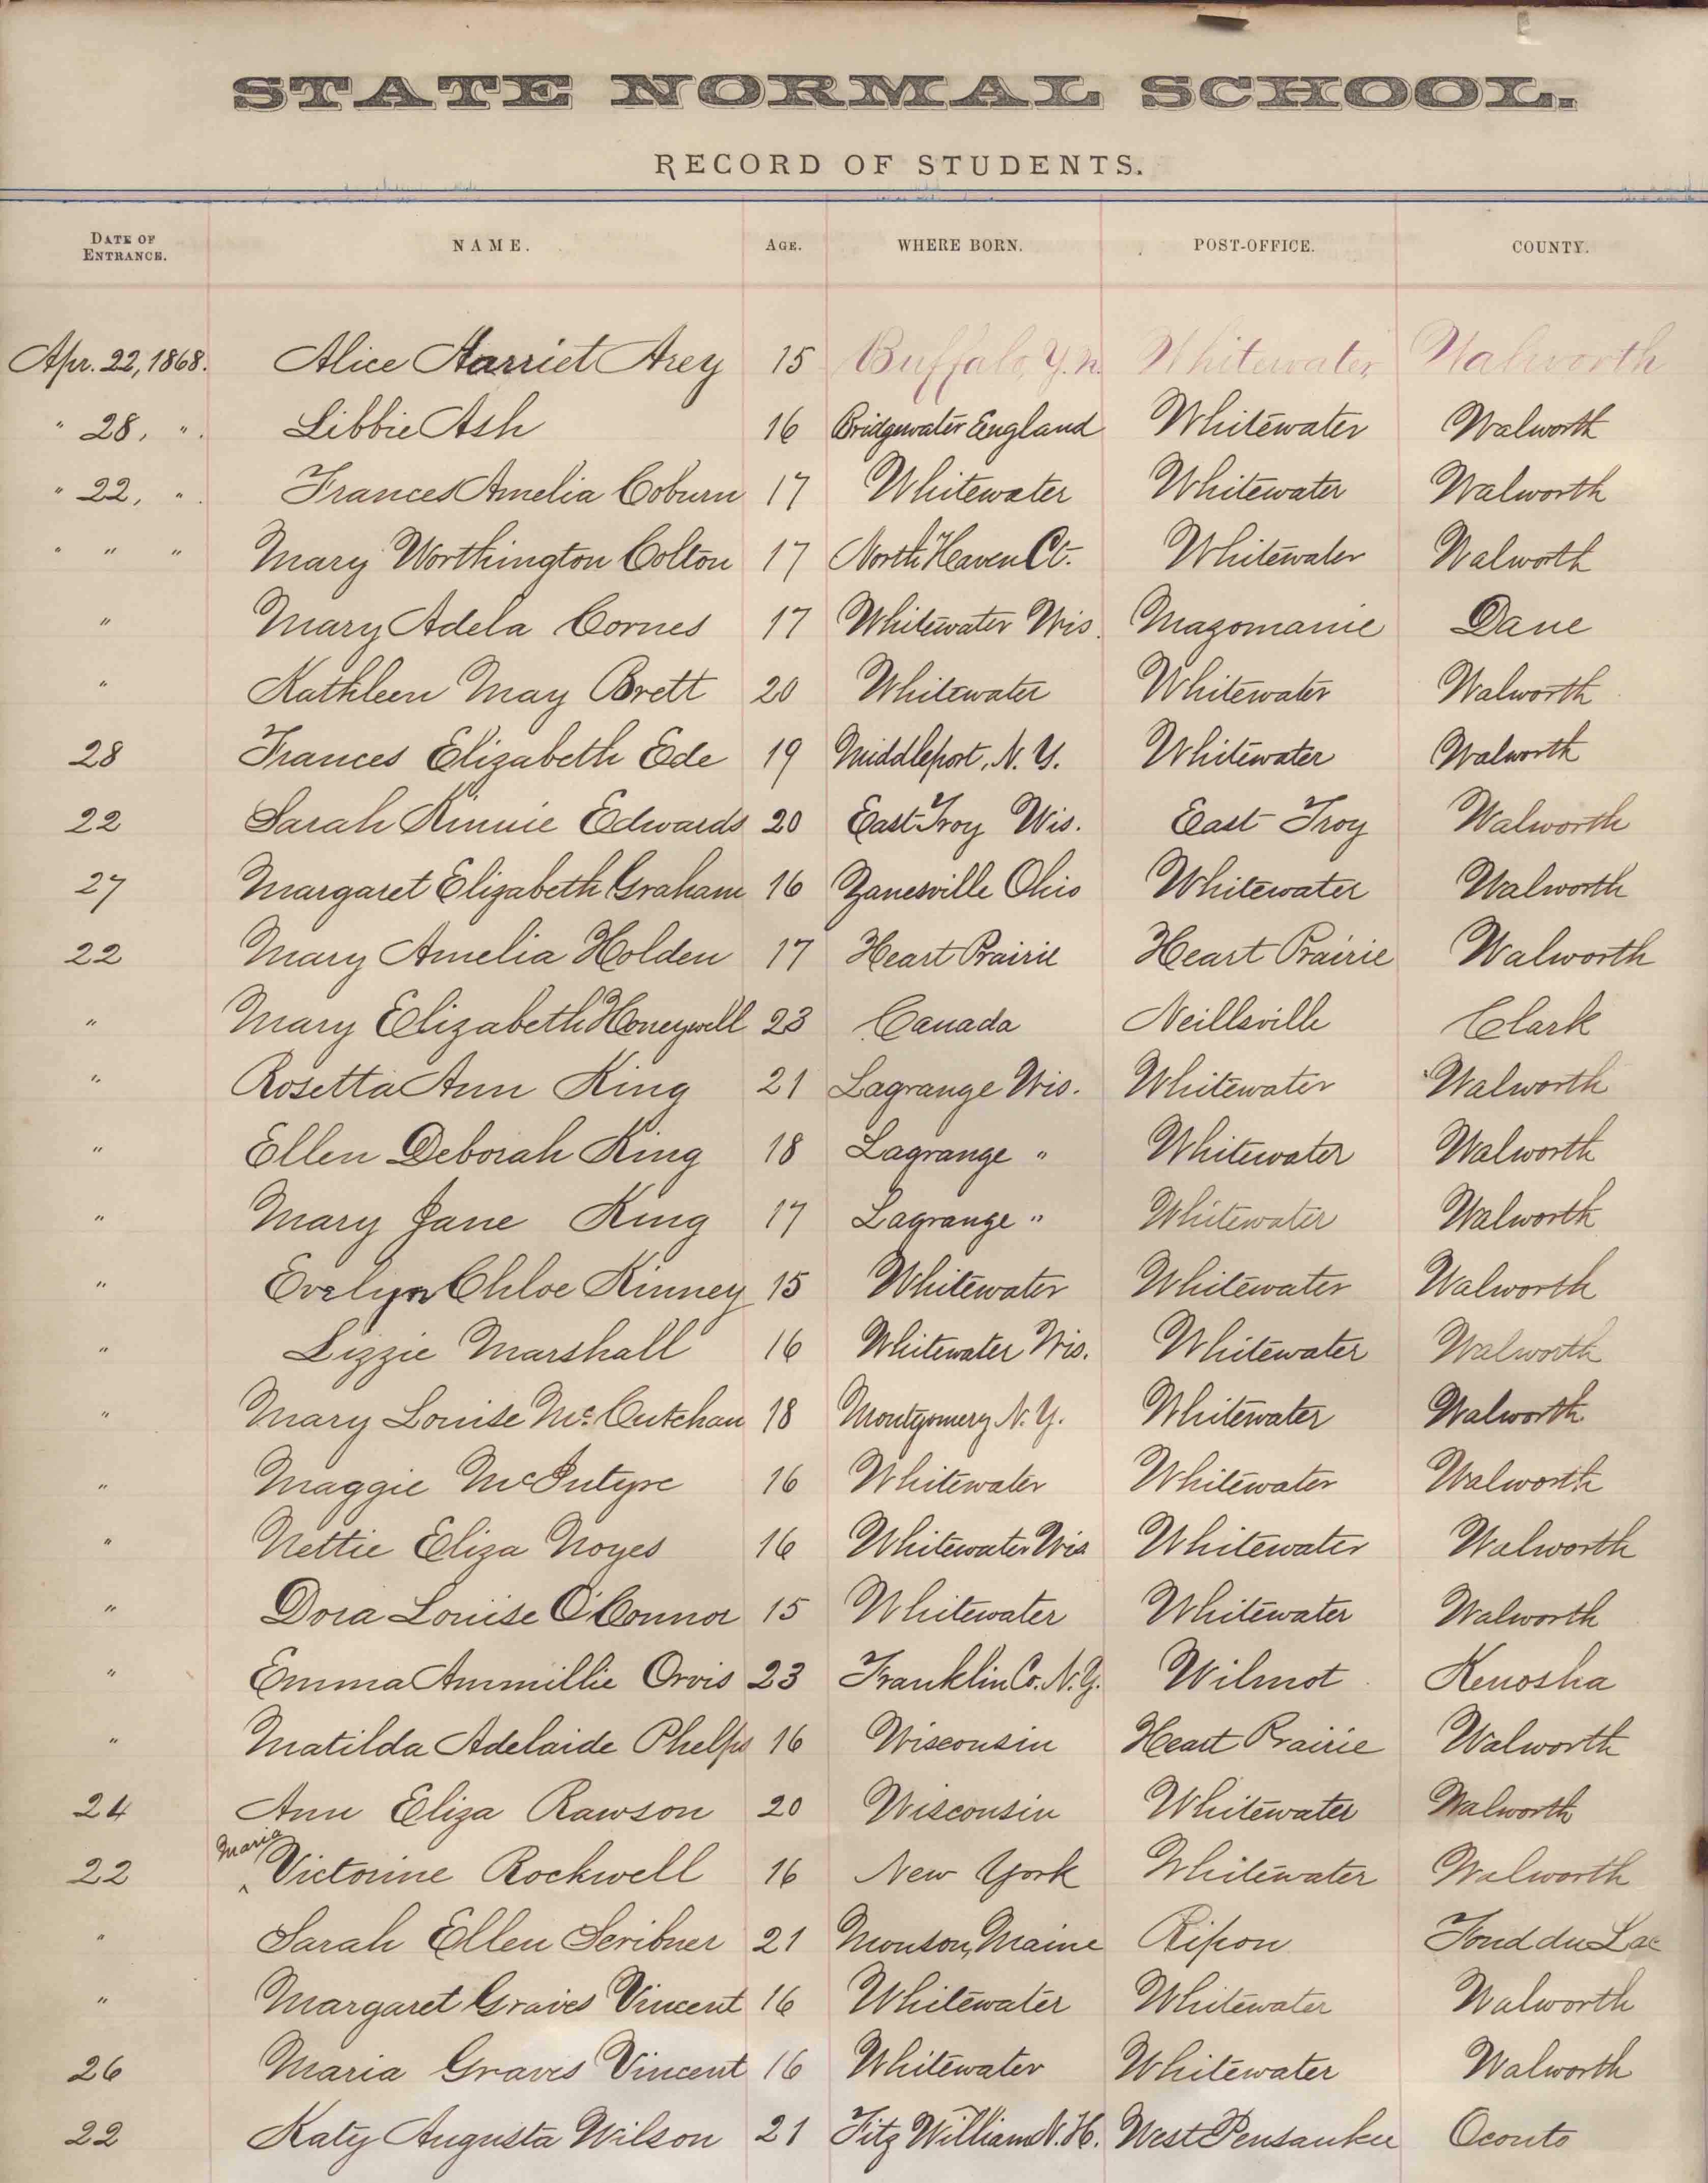 STATE NORMAL SCHOOL.
RECORD OF STUDENTS.
DATE OF ENTRANCE. NAME. AGE. WHERE BORN. POST-OFFICE. COUNTY.
Apr. 22, 1868. Alice Harriet Arey 15 Buffalo, Y. N. Whitewater, Walworth
" 28, ". Libbie Ash 16 Bridgewater England Whitewater Walworth
" 22, ". Frances Amelia Coburn 17 Whitewater Whitewater Walworth
" " " Mary Worthington Colton 17 North Haven Ct. Whitewater Walworth
" Mary Adela Cornes 17 Whitewater Wis. Mazomanie Dane
" Kathleen May Brett 20 Whitewater Whitewater Walworth
28 Frances Elizabeth Ede 19 Middleport, N. Y. Whitewater Walworth
22 Sarah Edwards 20 East Troy Wis. East Troy Walworth
27 Margaret Elizabeth Graham 16 Zanesville Ohio Whitewater Walworth
22 Mary Amelia Holden 17 Heart Prairie Heart Prairie Walworth
" Mary Elizabeth Honeywell 23 Canada Neillsville Clark
" Rosetta Ann King 21 Lagrange Wis. Whitewater Walworth
" Ellen Deborah King 18 Lagrange " Whitewater Walworth
" Mary Jane King 17 Lagrange " Whitewater Walworth
" Evelyn Chloe Kinney 15 Whitewater Whitewater Walworth
" Lizzie Marshall 16 Whitewater Wis. Whitewater Walworth
" Mary Louise Mc. Cutchan 18 Montgomery N. Y. Whitewater Walworth
" Maggie McIntyre 16 Whitewater Whitewater Walworth
" Nettie Eliza Noyes 16 Whitewater Wis Whitewater Walworth
" Dora Louise O'Connor 15 Whitewater Whitewater Walworth
" Emma Ammillie Orvis 23 Franklin Co. N. Y. Wilmot Kenosha
" Matilda Adelaide Phelps 16 Wisconsin Heart Prairie Walworth
24 Ann Eliza Rawson 20 Wisconsin Whitewater Walworth
22 Maria Victorine Rockwell 16 New York Whitewater Walworth
" Sarah Ellen Scribner 21 Monson, Maine Ripon Fond du Lac
" Margaret Graves Vincent 16 Whitewater Whitewater Walworth
26 Maria Graves Vincent 16 Whitewater Whitewater Walworth
22 Katy Augusta Wilson 21 Fitz William N. H. West Pensaukee Oconto